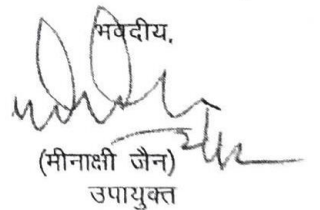 भवदीय,
(मीनाक्षी जैन)
उपायुक्त